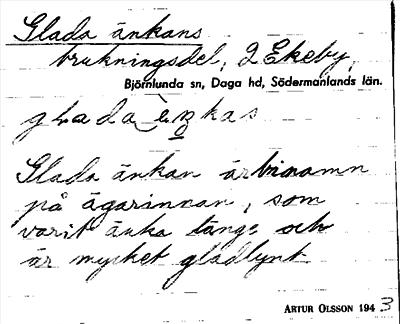 Glada änkans
brukningsdel, 2 Ekeby,
Björnlunda sn, Daga hd, Södermanlands län.
Glada änkan är binamn
på ägarinnan, som
varit änka länge och
är mycket gladlynt
ARTUR OLSSON 1943